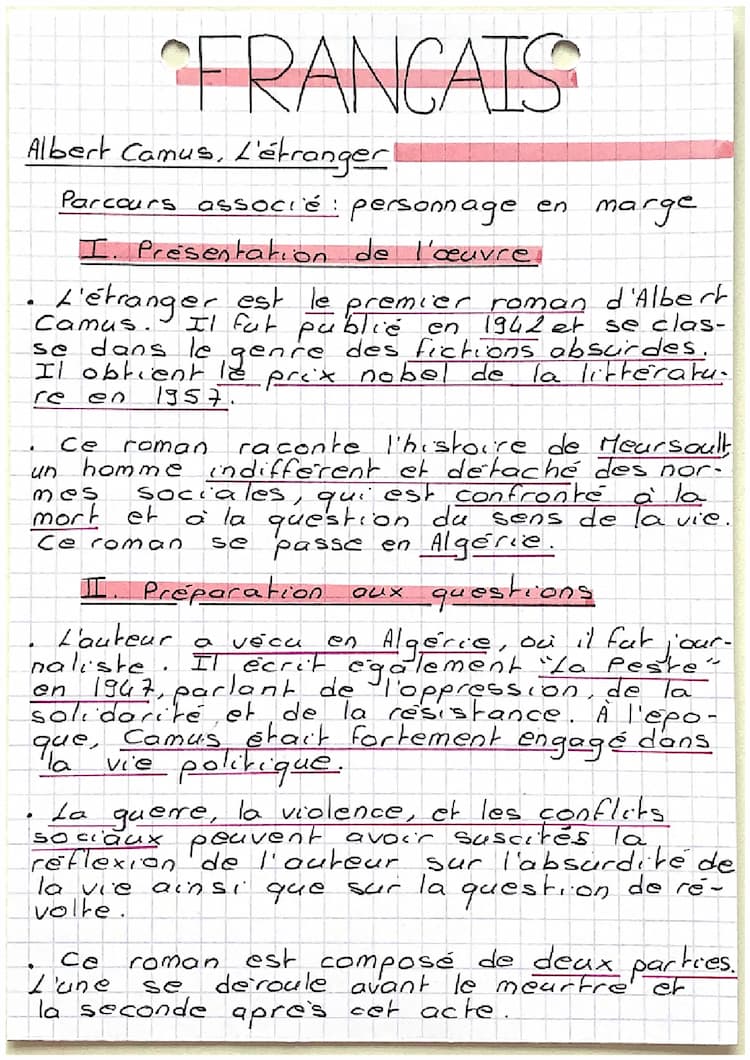 FRANCAIS
Albert Camus, L'étranger
Parcours associé : personnage en marge
I. Présentation de l'œuvre
• L'étranger est le premier roman d'Albert
Camus. Il fut publié en 1942 et se clas-
se dans le genre des fictions absurdes.
Il obtient le prix nobel de la littératu-
re en 1957.
• Ce roman raconte l'histoire de Meursault,
un homme indifférent et détaché des nor-
mes sociales, qui est confronté à la
mort et à la question du sens de la vie.
Ce roman se passe en Algérie.
II. Préparation aux questions
• L'auteur a vécu en Algérie, où il fut jour-
naliste. Il écrit également "La Peste"
en 1947, parlant de l'oppression, de la
solidarité et de la résistance. À l'épo-
que, Camus était fortement engagé dans
la vie politique.
• La guerre, la violence, et les conflits
sociaux peuvent avoir suscités la
réflexion de l'auteur sur l'absurdité de
la vie ainsi que sur la question de ré-
volte.
• Ce roman est composé de deux parties.
L'une se déroule avant le meurtre et
la seconde après cet acte.